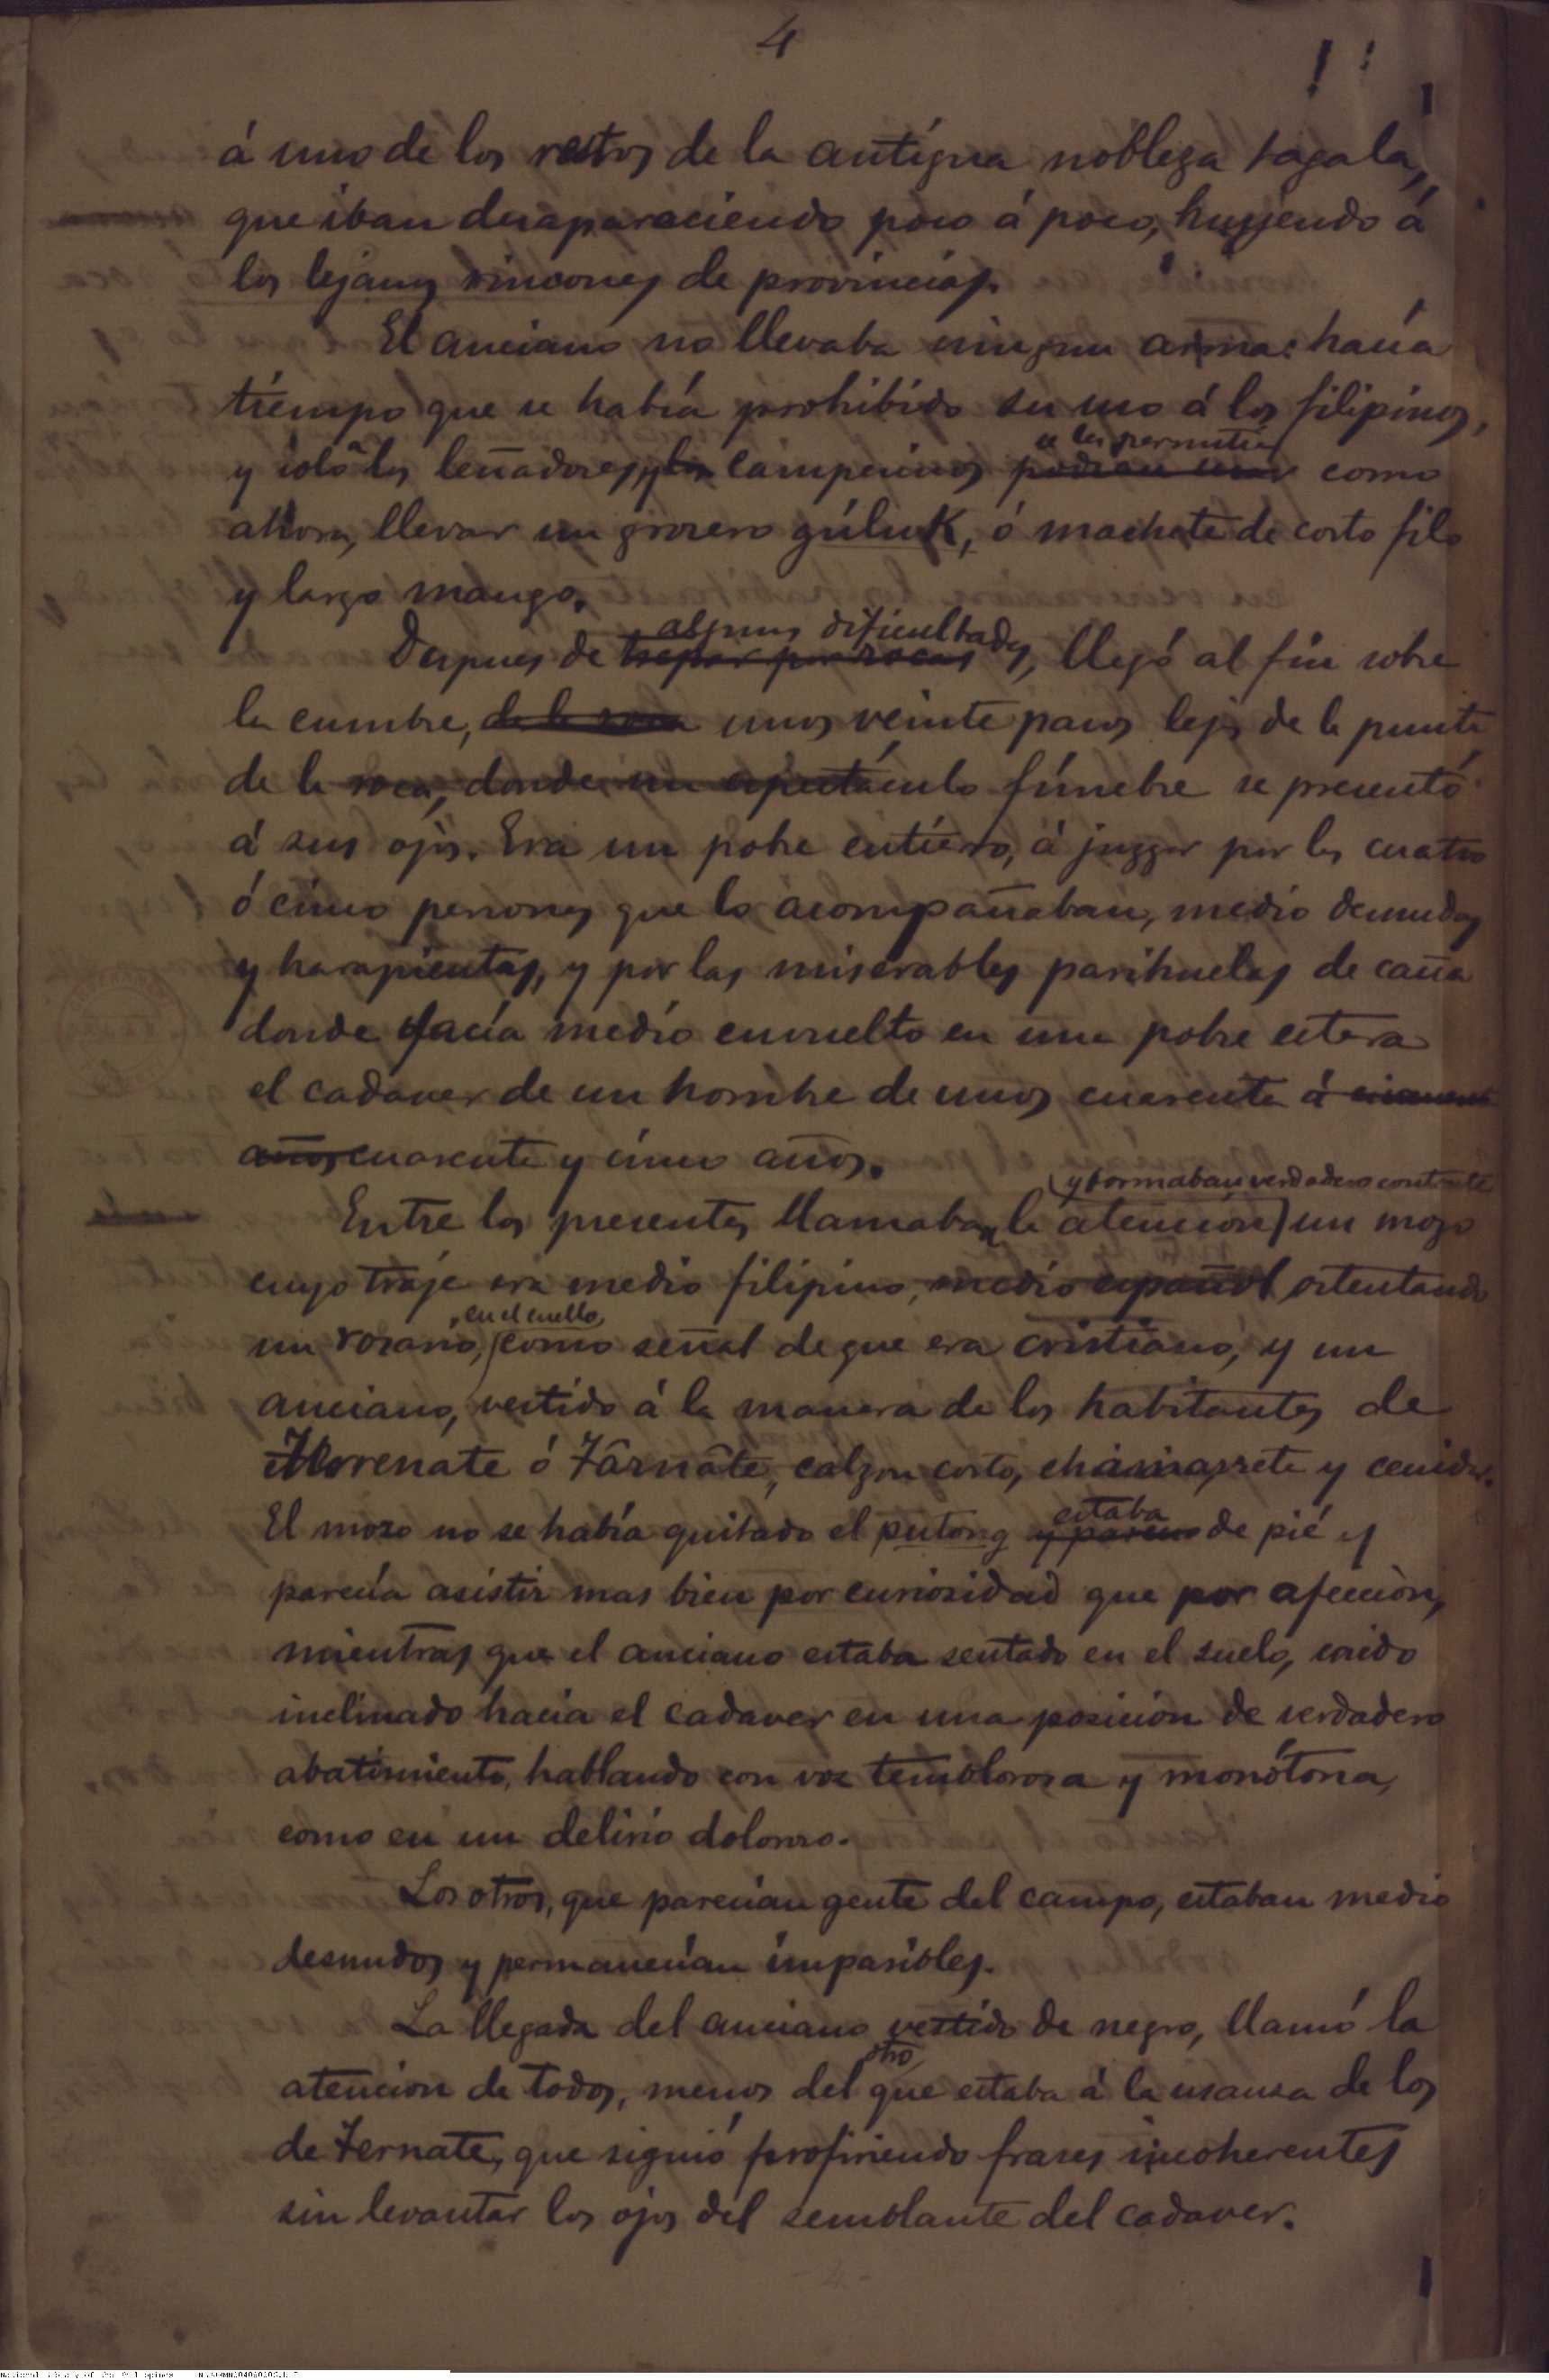 4
á uno de los restos de la antígua nobleza tagala,
que iban desapareciendo poco á poco, huyendo á
los lejanos rincones de provincias.
El anciano no llevaba ningun arma: hacía
tiempo que se había prohibido su uso á los filipinos,
se les permitía
y solo á los leñadores, y los campesinos podian usar como
ahora, llevar un grosero gúluk, ó machete de corto filo
y largo mango.
algunas dificultades,
Despues de trepar por rocas llegó al fin sobre
la cumbre, de la roca unos veinte pasos lejos de la punta
de la roca, donde un espectáculo fúnebre se presentó
á sus ojos. Era un pobre entierro, á juzgar por las cuatro
ó cinco personas que lo acompañaban, medio desnudas
y harapientas, y por las miserables parihuelas de caña
donde yacía medio envuelto en una pobre estera
el cadaver de un hombre de unos cuarenta á cincuenta
años cuarenta y cinco años.
(y formaban verdadero contraste
Entre los presentes llamaban la atencion) un mozo
cuyo traje era medio filipino, medio español ostentando
, en el cuello,
un rosario, como señal de que era cristiano, y un
anciano, vestido á la manera de los habitantes de
Ternate ó Tàrnâte, calzon corto, chamarreta y ceñidor.
estaba
El mozo no se había quitado el putong y parecia de pié y
parecía asistir mas bien por curiosidad que por afeccion,
mientras que el anciano estaba sentado en el suelo, caido
inclinado hacia el cadaver en una posicion de verdadero
abatimiento, hablando con voz temblorosa y monótona,
como en un delirio doloroso.
Los otros, que parecian gente del campo, estaban medio
desnudos y permanecían impasibles.
La llegada del anciano vestido de negro, llamó la
otro
atencion de todos, menos del que estaba á la usanza de los
de Ternate, que siguió profiriendo frases incoherentes
sin levantar los ojos del semblante del cadaver.
- 4 -